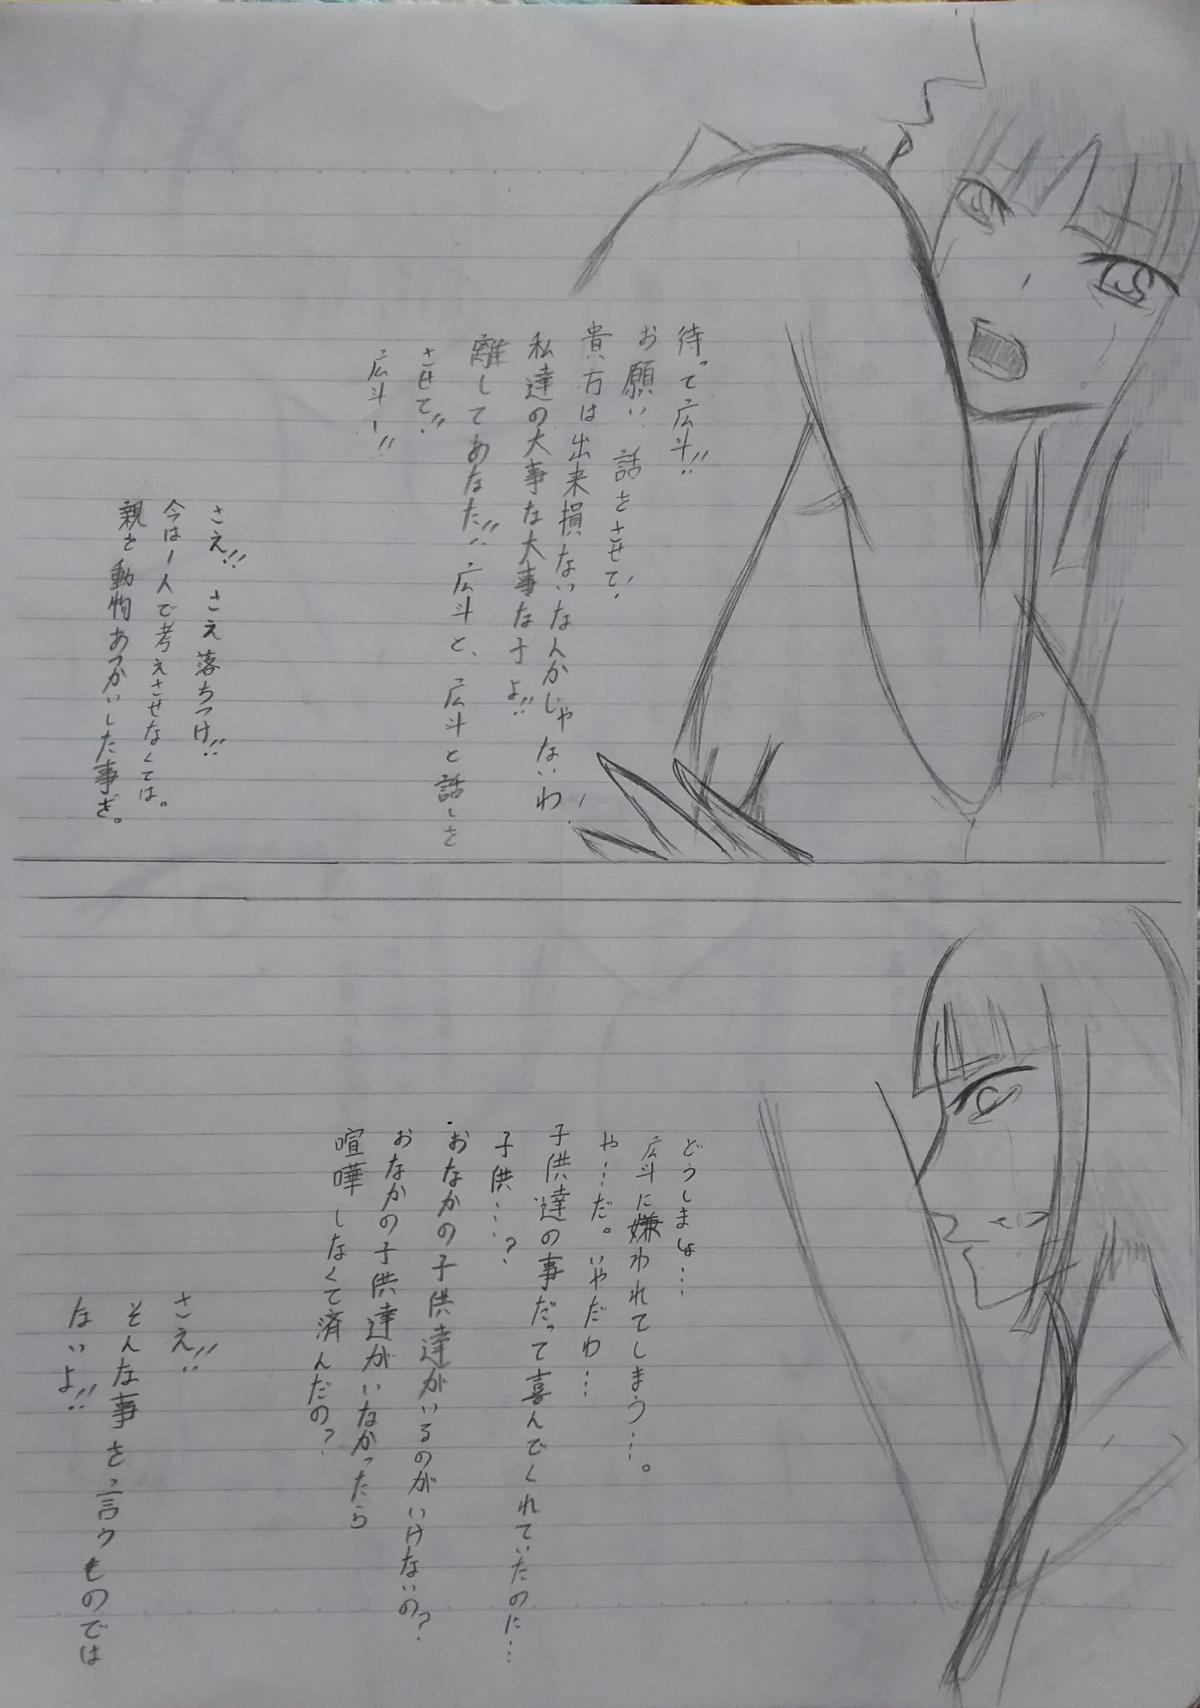 待って広斗!!
お願い、話をさせて!
貴方は出来損ないなんかじゃないわ!
私達の大事な大事な子よ!!
離してあなた!! 広斗と、広斗と話しを
させて!!
広斗ー!!
さえ!! さえ落ちつけ!!
今は1人で考えさせなくては。
親を動物あつかいした事を。
どうしましょ…
広斗に嫌われてしまう…。
や…だ。いやだわ…
子供達の事だって喜んでくれていたのに…
子供…?
おなかの子供達がいるのがいけないの?
おなかの子供達がいなかったら
喧嘩しなくて済んだの?
さえ!!
そんな事を言うものでは
ないよ!!